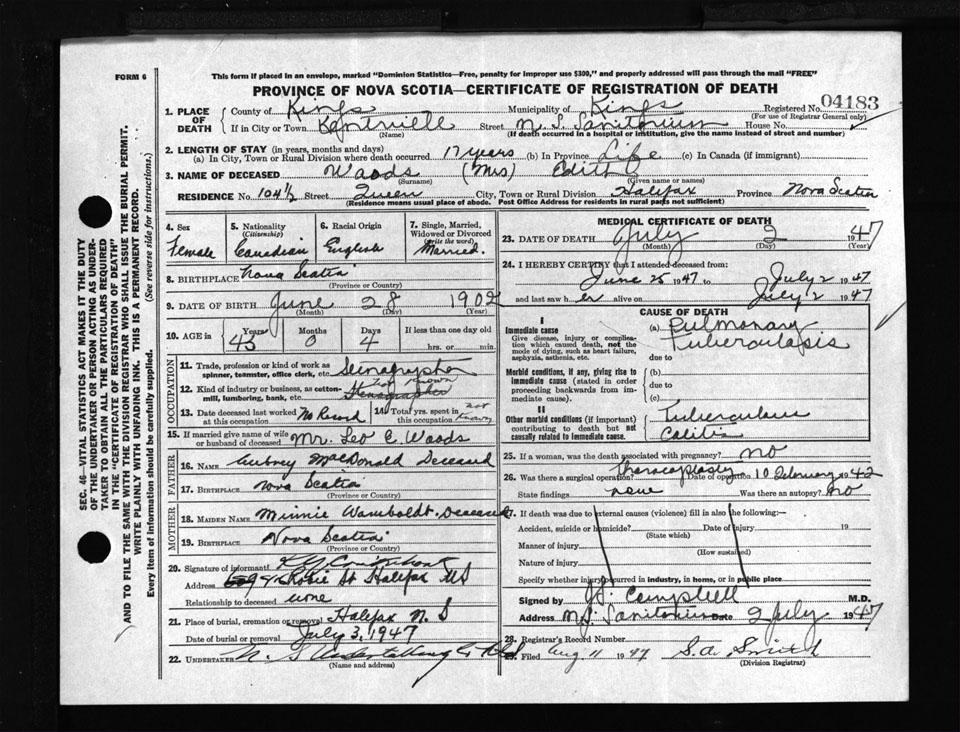 FORM 6
This form if placed in an envelope, marked "Dominion Statistics—Free, penalty for improper use $300," and properly addressed will pass through the mail "FREE"
PROVINCE OF NOVA SCOTIA—CERTIFICATE OF REGISTRATION OF DEATH
1. PLACE OF DEATH County of Kings Municipality of Kings Registered No. 04183
(For use of Registrar General only)
If in City or Town Kentville Street N. S. Sanitorium House No.
(Name) (If death occurred in a hospital or institution, give the name instead of street and number)
2. LENGTH OF STAY (in years, months and days)
(a) In City, Town or Rural Division where death occurred 17 years (b) In Province Life (c) In Canada (if immigrant)
3. NAME OF DECEASED Woods (Mrs) Edith C
(Surname) (Given name or names)
RESIDENCE No. 104 1/2 Street Queen City, Town or Rural Division Halifax Province Nova Scotia
(Residence means usual place of abode. Post Office Address for residents in rural parts not sufficient)
4. Sex Female
5. Nationality (Citizenship) Canadian
6. Racial Origin English
7. Single, Married, Widowed or Divorced (write the word) Married.
8. BIRTHPLACE Nova Scotia
(Province or Country)
9. DATE OF BIRTH June 28 1902
(Month) (Day) (Year)
10. AGE in Years 45 Months 0 Days 4 If less than one day old
hrs. or min.
OCCUPATION
11. Trade, profession or kind of work as spinner, teamster, office clerk, etc. Stenographer
12. Kind of industry or business, as cotton-mill, lumbering, bank, etc. Not Known Stenographer
13. Date deceased last worked at this occupation No Record 14. Total yrs. spent in this occupation not known
15. If married give name of wife or husband of deceased Mr. Leo C. Woods
FATHER
16. NAME Aubrey MacDonald Deceased
17. BIRTHPLACE Nova Scotia
(Province or Country)
MOTHER
18. MAIDEN NAME Minnie Wamboldt. Deceased
19. BIRTHPLACE Nova Scotia
(Province or Country)
20. Signature of informant
Address St Halifax NS
Relationship to deceased none
21. Place of burial, cremation or removal Halifax N. S
Date of burial or removal July 3, 1947
22. UNDERTAKER N. S Undertaking Co
(Name and address)
MEDICAL CERTIFICATE OF DEATH
23. DATE OF DEATH July 2 1947
(Month) (Day) (Year)
24. I HEREBY CERTIFY that I attended deceased from:
June 25 1947 to July 2 1947
and last saw her alive on July 2 1947
CAUSE OF DEATH
I
Immediate cause (a) Pulmonary Tuberculosis
Give disease, injury or complication which caused death, not the mode of dying, such as heart failure, asphyxia, asthenia, etc.
due to
Morbid conditions, if any, giving rise to immediate cause (stated in order proceeding backwards from immediate cause).
(b)
due to
(c)
II
Other morbid conditions (if important) contributing to death but not causally related to immediate cause. Tuberculous Colitis
25. If a woman, was the death associated with pregnancy? No
26. Was there a surgical operation? Thoracoplasty Date of operation 10 February 1942
State findings none Was there an autopsy? No
27. If death was due to external causes (violence) fill in also the following:—
Accident, suicide or homicide? Date of injury 19
(State which)
Manner of injury
(How sustained)
Nature of injury
Specify whether injury occurred in industry, in home, or in public place
Signed by J. J. Campbell M.D.
Address N.S. Sanitorium Date 2 July 1947
28. Registrar's Record Number
29. Filed Aug 11 1947 S. A. Smith
(Division Registrar)
SEC. 46—VITAL STATISTICS ACT MAKES IT THE DUTY
OF THE UNDERTAKER OR PERSON ACTING AS UNDER-
TAKER TO OBTAIN ALL THE PARTICULARS REQUIRED
IN THE "CERTIFICATE OF REGISTRATION OF DEATH"
AND TO FILE THE SAME WITH THE DIVISION REGISTRAR WHO SHALL ISSUE THE BURIAL PERMIT.
WRITE PLAINLY WITH UNFADING INK. THIS IS A PERMANENT RECORD.
Every item of information should be carefully supplied. (See reverse side for instructions.)